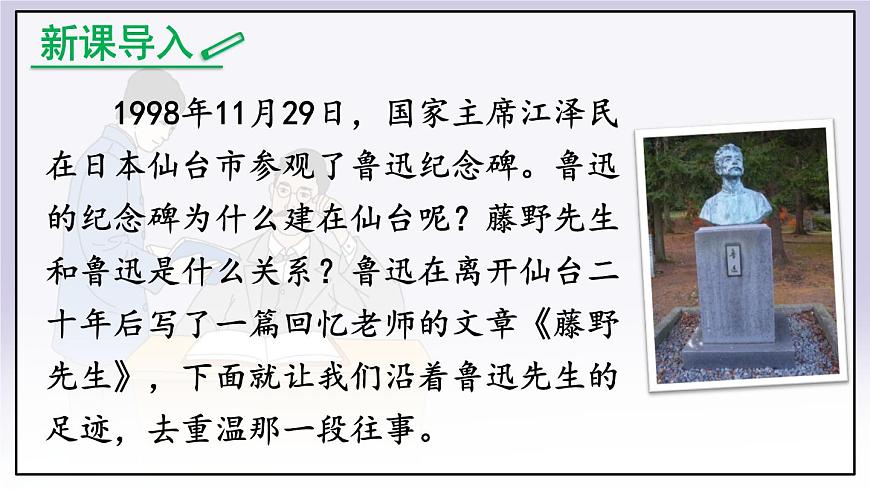 新课导入
1998年11月29日，国家主席江泽民
在日本仙台市参观了鲁迅纪念碑。鲁迅
的纪念碑为什么建在仙台呢？藤野先生
和鲁迅是什么关系？鲁迅在离开仙台二
十年后写了一篇回忆老师的文章《藤野
先生》，下面就让我们沿着鲁迅先生的
足迹，去重温那一段往事。
鲁迅